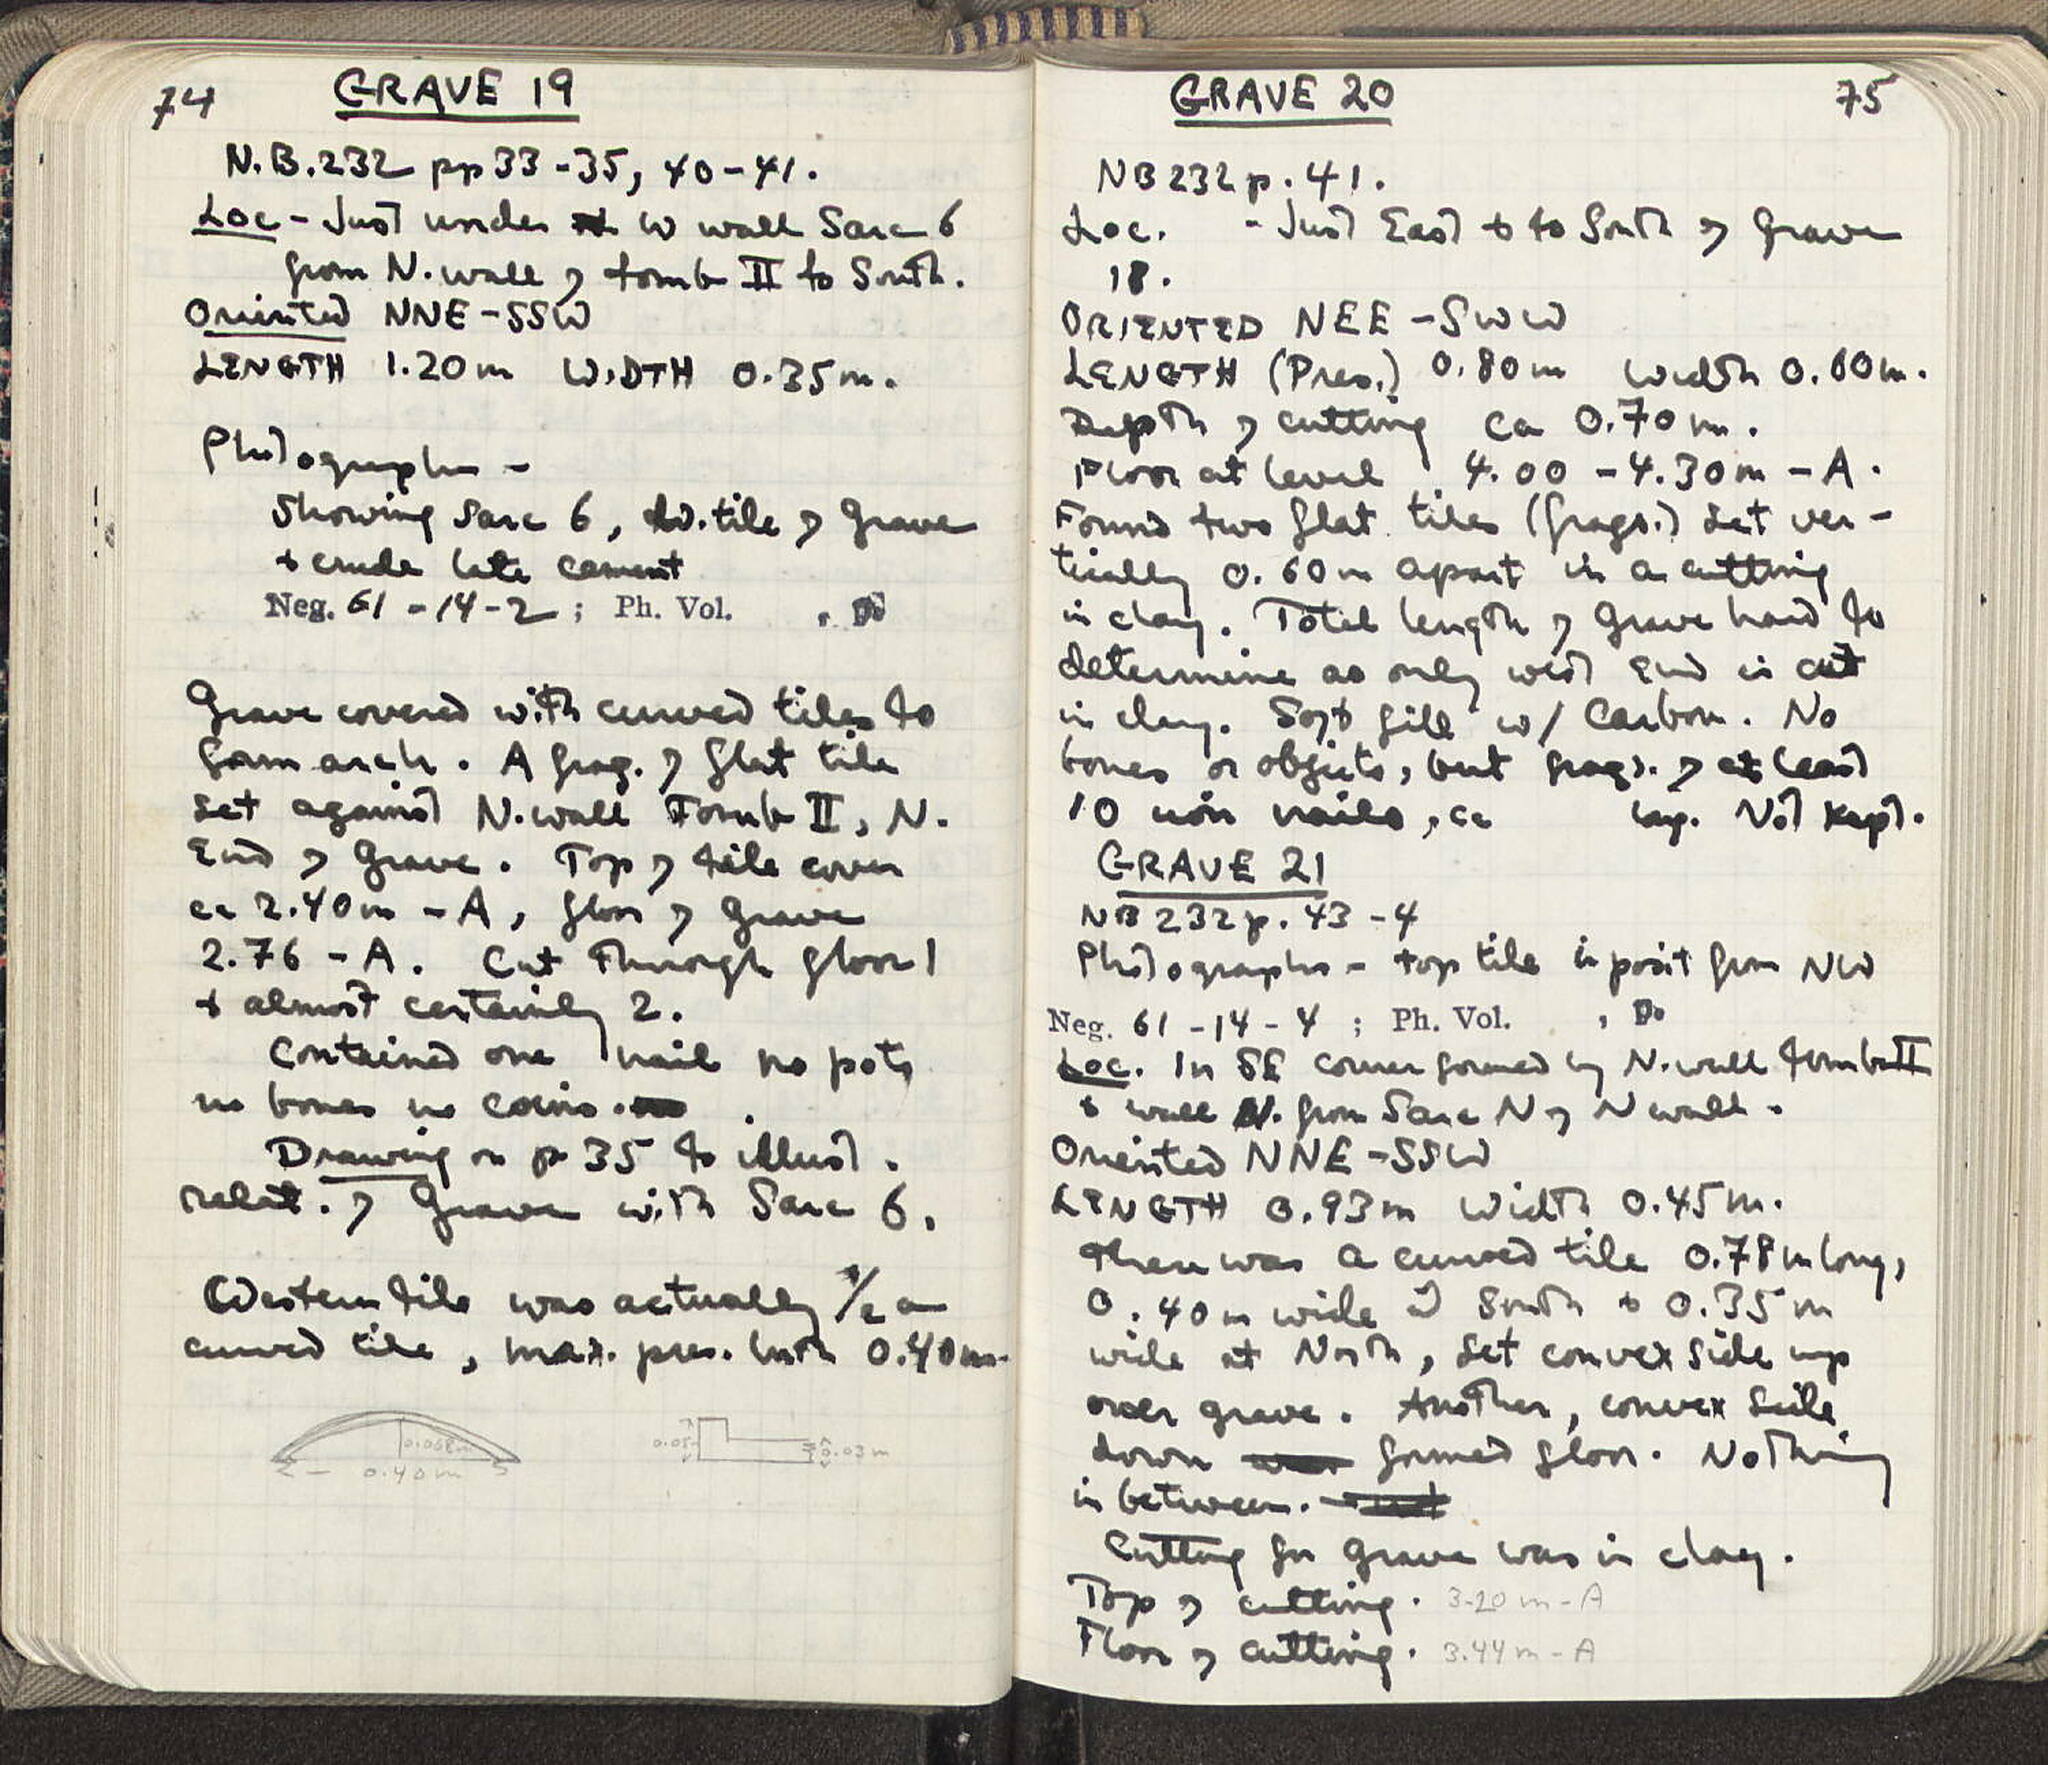 74
GRAVE 19
N.B.232 pp 33-35, 40-41.
Loc - Just under W wall Sarc 6
from N. wall of tomb II to South.
Oriented NNE-SSW
LENGTH 1.20m WIDTH 0.35m.
Photographs -
Showing Sarc 6, W. tile of Grave
+ crude late cement
Neg. 61-14-2; Ph. Vol. ,
Grave covered with curved tiles to
form arch. A frag. of flat tile
set against N. wall Tomb II, N.
End of Grave. Top of tile cover
ca 2.40m - A, floor of Grave
2.76 - A. Cut through floor 1
+ almost certainly 2.
Contained one nail no pots
no bones no coins.
Drawing on p 35 to illust.
relat. of Grave with Sarc 6.
Western tile was actually 1/2 a
curved tile, max. pres. lnth 0.40m.
0.068m
0.40m
0.05
0.03m
GRAVE 20
75
NB232 p. 41.
Loc. - Just East + to South of Grave
18.
ORIENTED NEE-SWW
LENGTH (Pres.) 0.80m Width 0.60m.
Depth of cutting ca 0.70m.
Floor at level 4.00-4.30m - A.
Found two flat tiles (frags.) set ver-
tically 0.60m apart in a cutting
in clay. Total length of Grave hard to
determine as only west End is cut
in clay. Soft fill w/ Carbon. No
bones or objects, but frags. of at least
10 iron nails, ca long. Not kept.
GRAVE 21
NB232 p. 43-4
Photographs - top tile in posit from NW
Neg. 61-14-4; Ph. Vol. ,
Loc. In SE corner formed by N. wall tomb II
+ wall N. from Sarc N of N wall.
Oriented NNE-SSW
LENGTH 0.93m Width 0.45m.
There was a curved tile 0.78m long,
0.40m wide at South + 0.35m
wide at North, set convex side up
over grave. Another, convex side
down formed floor. Nothing
in between.
Cutting for Grave was in clay.
Top of cutting. 3.20m - A
Floor of cutting. 3.44m - A